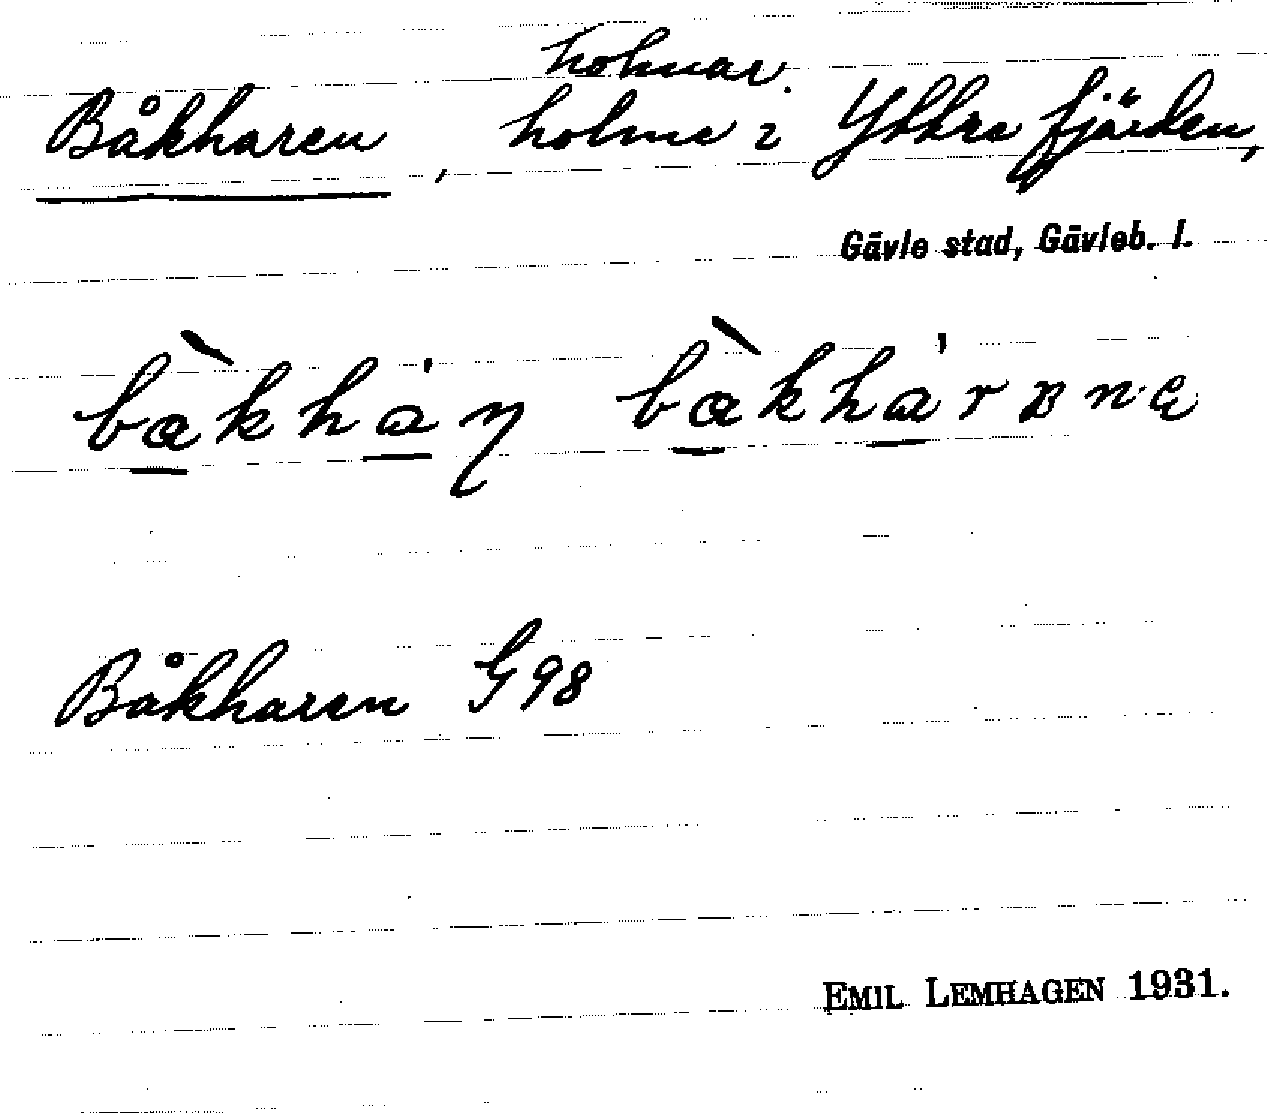 holmar.
Båkharen, holme i Yttre fjärden,
Gävle stad, Gävleb. l.
Båkharen G 98
EMIL LEMHAGEN 1931.